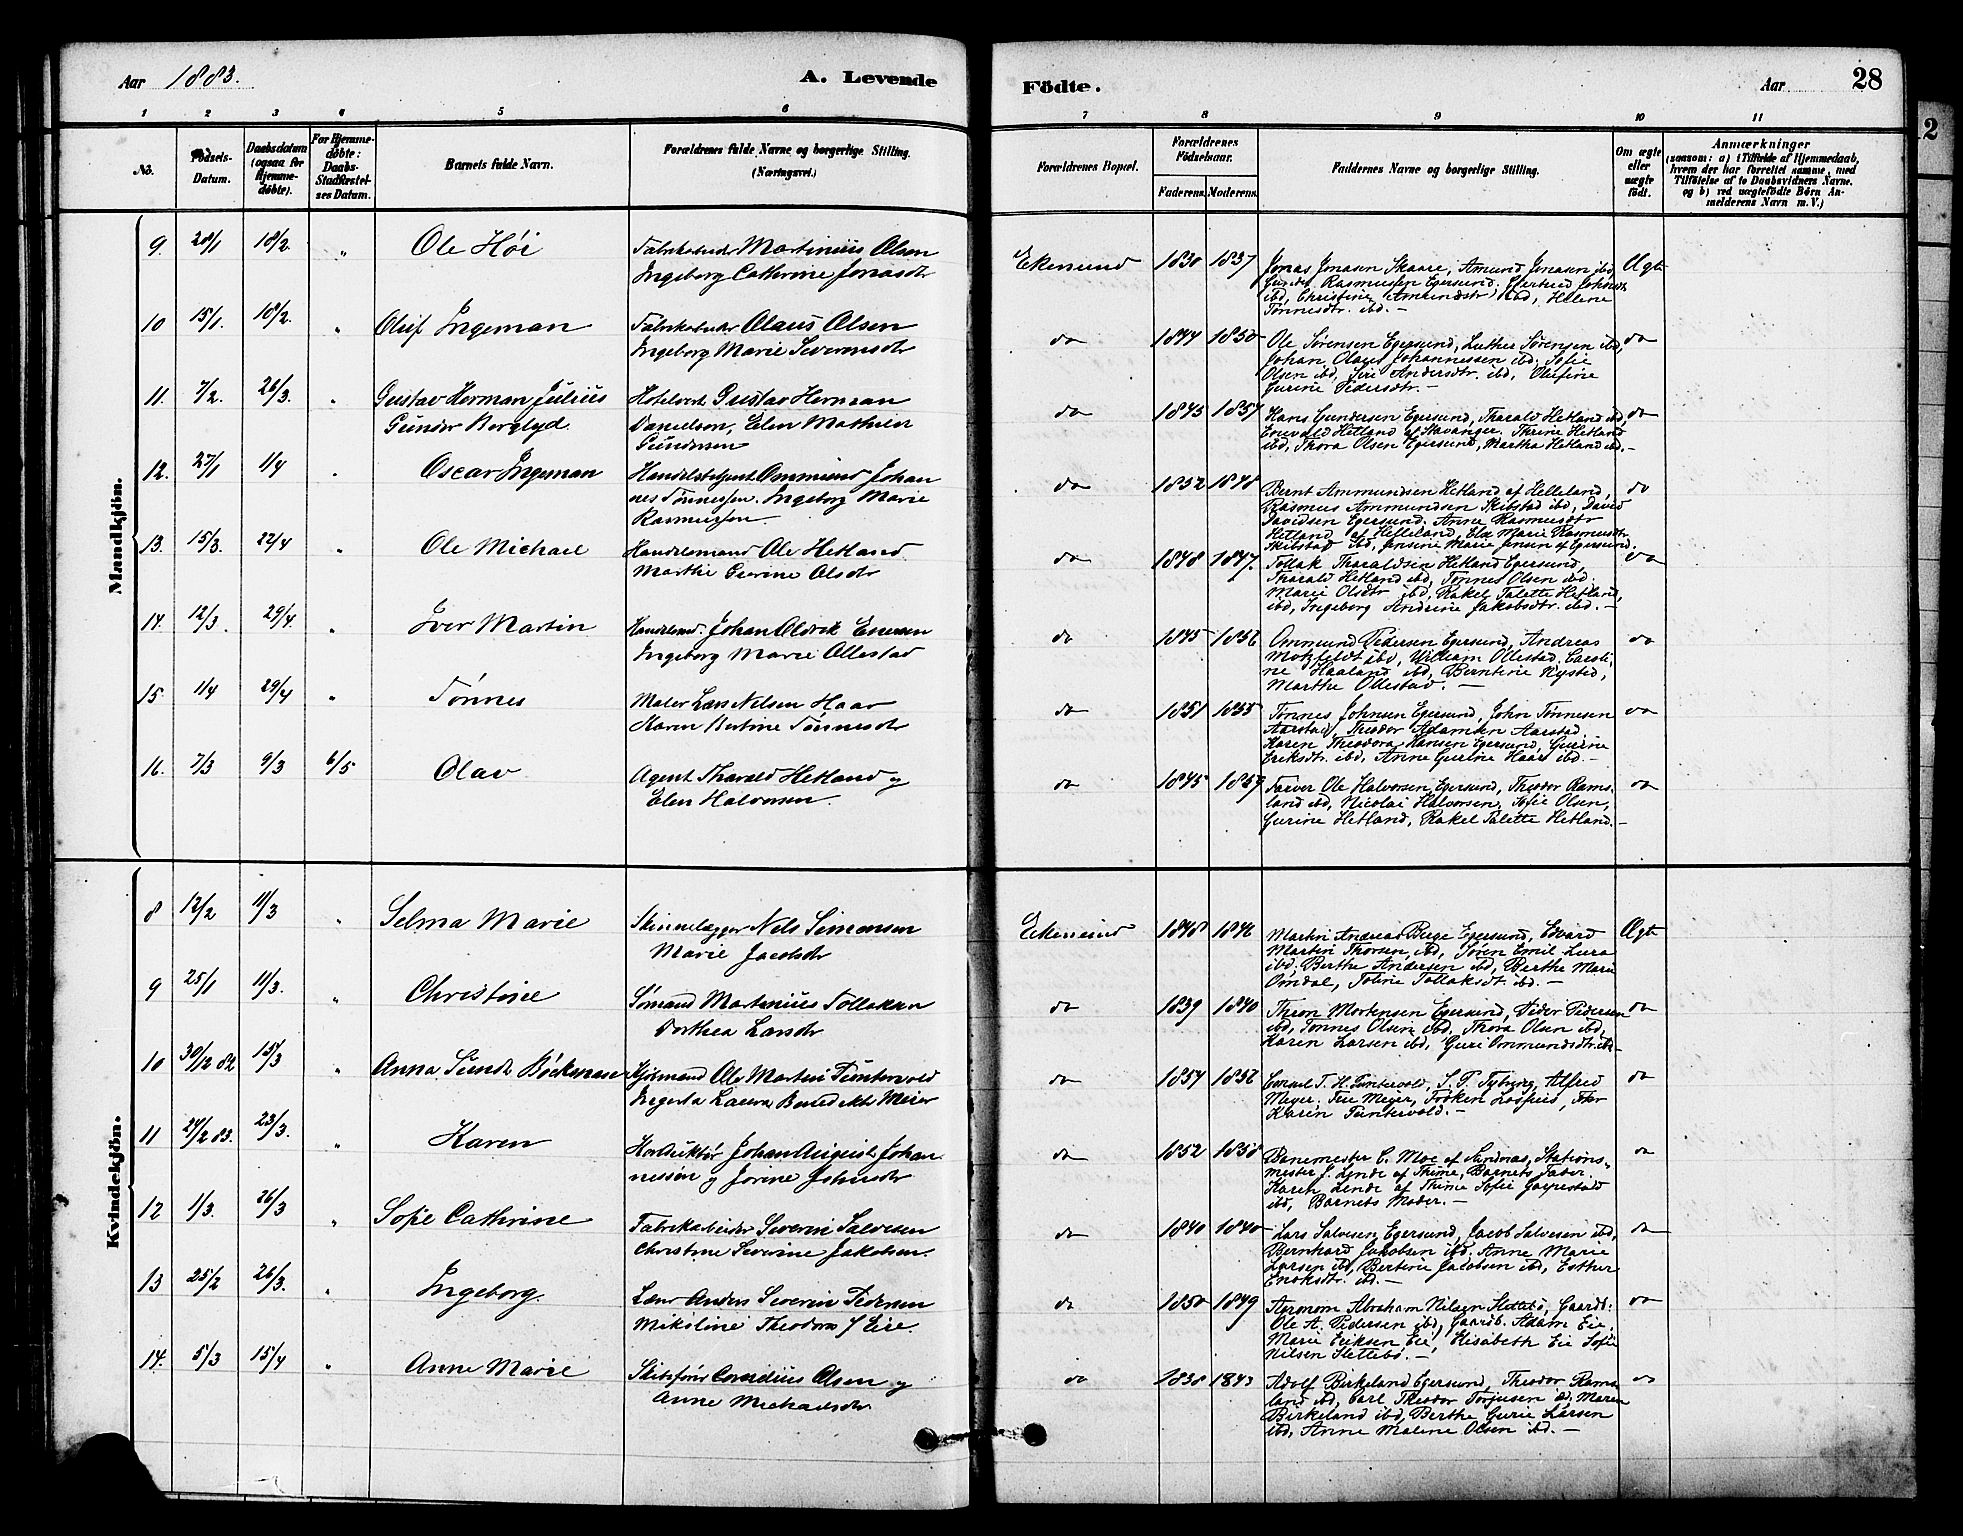 Aar 1883.
A. Levende
Födte.
Aar
28
1 2 3 4 5 6 7 8 9 10 11
No.
Födsels-Datum.
Daabsdatum (ogsaa for Hjemmedøbte).
For Hjemmedøbte: Daabs-Stadfæstelses Datum.
Barnets fulde Navn.
Forældrenes fulde Navne og borgerlige Stilling. (Næringsvei.)
Forældrenes Bopæl.
Forældrenes Födselsaar.
Faderens. Moderens.
Faddernes Navne og borgerlige Stilling.
Om ægte eller uægte födt.
Anmærkninger
(saasom: a) i Tilfælde af Hjemmedaab, hvem der har forrettet samme, med Tilföielse af to Daabsvidners Navne, og b) ved uægtefödte Börn Anmelderens Navn m. V.)
Mandkjön.
9. 28/1 18/2 " Ole Höi
Fabrikarbeider Martinius Olsen
Ingeborg Cathrine Jonasdtr
Ekersund 1830 1837
Jonas Jonasen Skaare, Amund Jonasen ibd,
Rasmussen Egersund, Gjertrud
ibd, Christine Amundsdtr ibd, Helene
Tönnesdtr. ibd. —
Ægte
10 15/1. 18/2. " Oluf Ingeman
Fabrikarbeider Olaus Olsen
Ingeborg Marie Severinsdtr
do 1844 1850
Ole Sörensen Egersund, Luther Sörensen ibd,
Johan Olaus Johannessen ibd, Sofie
Olsen ibd, Siri Andersdtr. ibd, Olufine
Gurine Pedersdtr. —
do
11. 7/2. 26/3. " Gustav Herman Julius
Gunder Borglyd.
Hotelvert Gustav Herman
Danielson, Elen Mathilde
Gundersen
do 1845 1857
Hans Gundersen Egersund, Tharald Hetland ibd,
Enevald Hetland af Stavanger, Thrine Hetland
ibd, Thora Olsen Egersund, Martha Hetland ibd. —
do
12. 27/1 1/4 " Oscar Ingeman
Handelsbetjent Ommund Johan
nes Tönnessen. Ingeborg Marie
Rasmussen
do 1852 1848
Bernt Ammundsen Hetland af Helleland,
Rasmus Ammundsen Skibstad ibd, David
Davidsen Egersund. Anne Rasmusdtr
Hetland af Helleland, Marie Rasmusdtr
Skibstad ibd, Jensine Marie Jensen af Egersund.
do
13. 15/3. 22/4 " Ole Michael
Handelsmand Ole Hetland
Marthe Gurine Olsdtr
do 1848 1847.
Tollak Tharaldsen Hetland Egersund,
Tharald Hetland ibd, Tönnes Olsen ibd.
Marie Olsdtr ibd, Rakel Talette Hetland,
ibd, Ingeborg Andrine Jakobsdtr. ibd. —
do
14. 12/3. 29/4. " Iver Martin
Johan
Ingeborg Marie Ollestad
do 1845 1856
Ommund Pedersen Egersund, Andreas
Motzfeldt ibd, William Ollestad, Caroli
ne Haaland ibd, Berntine Nysted,
Marthe Ollestad. —
do
15. 1/4 29/4 " Tönnes
Maler Lars Nelsen Haar
Karen Bertine Tönnesdtr
do 1851 1855
Tönnes Johnsen Egersund, John Tönnesen
Aarstad, Theodor Adamsen Aarstad,
Karen Theodora Hansen Egersund, Gurine
Eriksdtr. ibd, Anne Gurine Haar ibd. —
do
16. 7/3 9/3 6/5 Olav
Agent Tharald Hetland og
Elen Halvorsen.
do 1845 1859
Farver Ole Halvorsen Egersund, Theodor Rams-
land ibd, Nicolai Halvorsen, Sofie Olsen,
Gurine Hetland, Rakel Talette Hetland. —
do
Kvindekjön.
8 12/2 11/3 " Selma Marie
Nels Simonsen
Marie Jacobsdtr
Ekersund 1848 1846
Martin Andreas Berge Egersund, Edvard
Martin Thorsen, ibd, Sören Emil Lura
ibd, Berthe Andersen ibd, Berthe Marie
Omdal, Toline Tollaksdt. ibd. —
Ægte
9 25/1 11/3. " Christine
Sömand Martinius Tollaksen
Dorthea Larsdtr
do 1839 1840
Thron Mortensen Egersund, Peder Pedersen
ibd, Tönnes Olsen ibd, Thora Olsen ibd,
Karen Larsen ibd, Guri Ommundsdtr. ibd
do
10 30/12 82 15/3 " Anna Sundt Böckman
Kjöbmand Ole Martin Puntervold
Ingerta Laura Benedikte Meier
do 1857 1856
Consul T. H. Puntervold, S. P. Tyberg, Alfred
Meyer, Meyer, Fröken
Karin Puntervold. —
do
11 24/2 83. 23/3. " Karen
Konduktör Johan August Johan
nessön og Jorine Johnsdtr
do 1852 1858
Banemester C. Moe af Sandnæs, Stations-
mester J. Lende af Thime, Barnets Fader
Karen Lende af Thime Sofie
ibd, Barnets Moder. —
do
12 1/3. 26/3 " Sofie Cathrine
Fabrikarbeider Severin Salvesen
Christine Severine Jakobsen.
do 1840 1840
Lars Salvesen Egersund, Jacob Salvesen ibd,
Bernhard Jakobsen ibd. Anne Marie
Larsen ibd, Bertine Jacobsen ibd, Esther
Enoksdtr. ibd. —
do
13 25/2 26/3. " Ingeborg.
Anders Severin Pedersen
Mikeline Theodora Eie.
do 1850 1849
Abraham Nilsen Slettebö, Gaardb:
Ole A. Pedersen ibd, Gaardb. Adam Eie,
Marie Eriksen Eie, Elisabeth Eie Sofie
Nilsen Slettebö. —
do
14. 5/3 15/4 " Anne Marie
Skibsförer Cornelius Olsen og
Anne Michaelsdtr
do 1838 1843
Adolf Birkeland Egersund, Theodor Rams-
land ibd, Carl Theodor Torjusen ibd, Maren
Birkeland ibd, Berthe Gurie Larsen
ibd, Anne Malene Olsen ibd. —
do
12